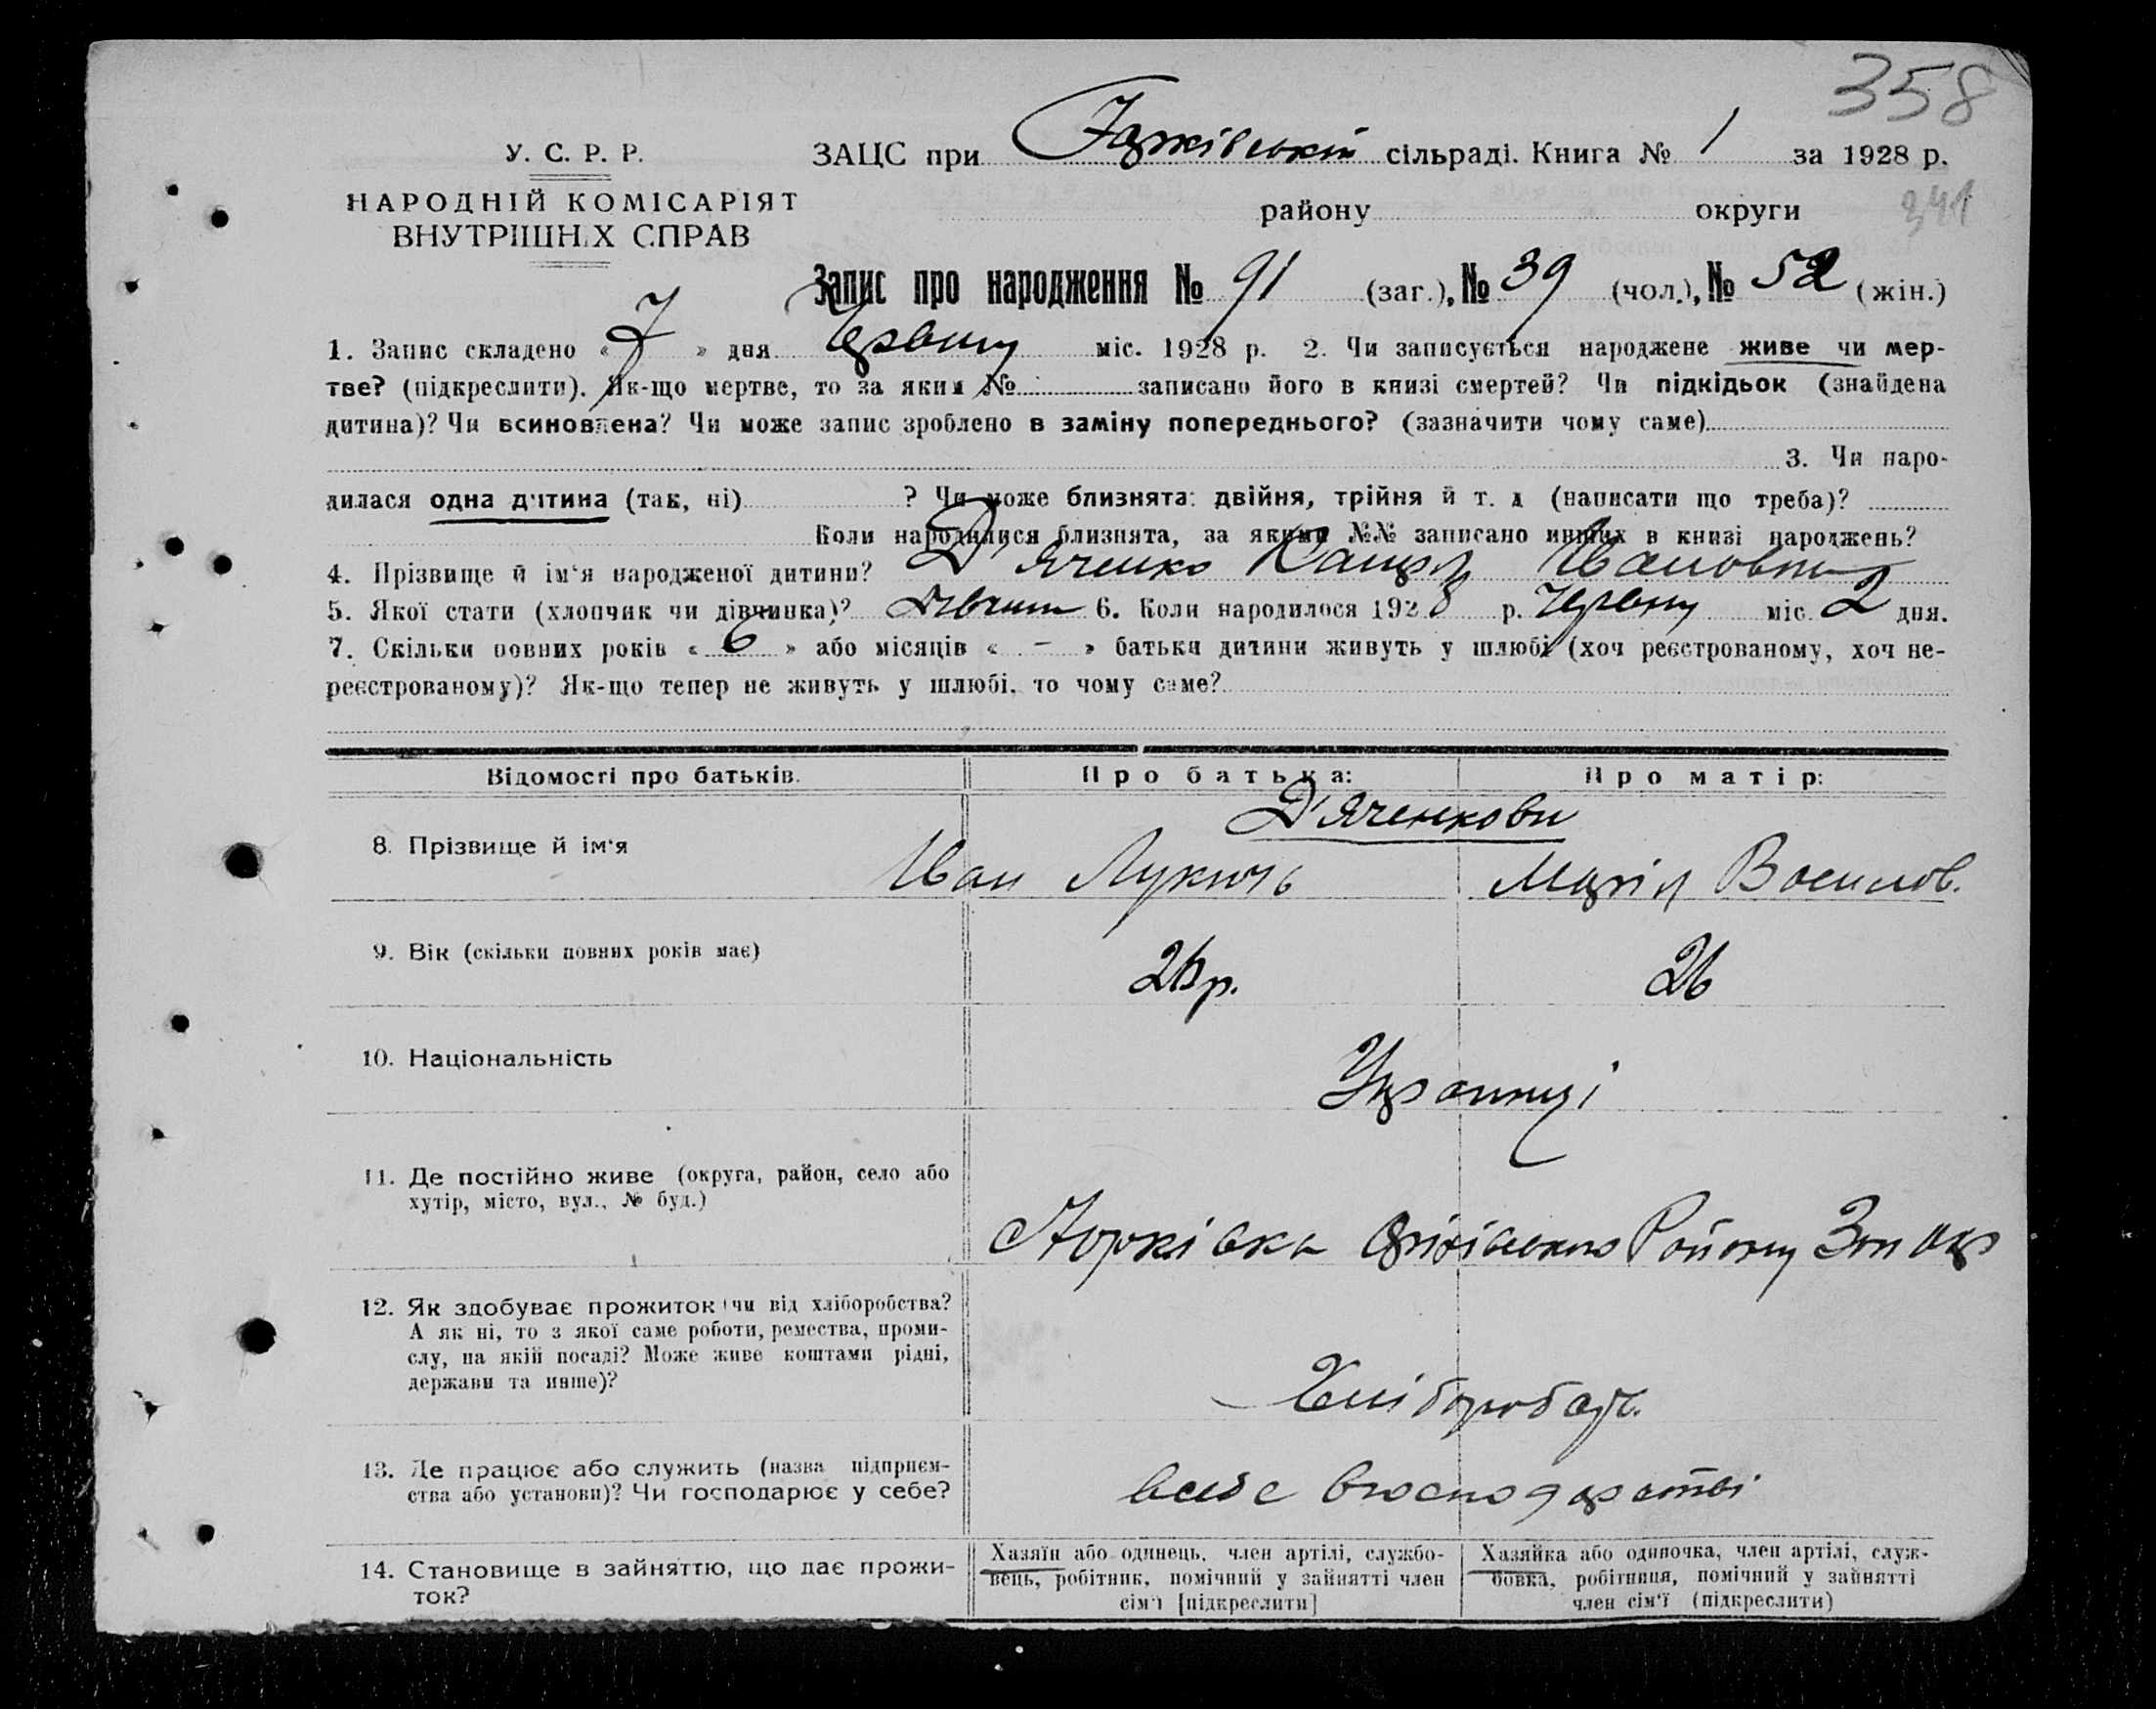 358
У. С. Р. Р.
ЗАЦС при сільраді. Книга № 1 за 1928 р.
НАРОДНІЙ КОМІСАРІЯТ
району округи 341
ВНУТРІШНІХ СПРАВ
Запис про народження № 91 (заг.), № 39 (чол.), № 52 (жін.)
1. Запис складено « 7 » дня Червня міс. 1928 р. 2. Чи записується народжене живе чи мер-
тве? (підкреслити). Як-що мертве, то за яким № записано його в книзі смертей? Чи підкідьок (знайдена
дитина)? Чи всиновлена? Чи може запис зроблено в заміну попереднього? (зазначити чому саме)
3. Чи наро-
дилася одна дитина (так, ні) ? Чи може близнята: двійня, трійня й т. д (написати що треба)?
Коли народилися близнята, за якими №№ записано инших в книзі народжень?
4. Прізвище й ім'я народженої дитини? Д'яченко Івановна
5. Якої стати (хлопчик чи дівчинка)? Дівчин 6. Коли народилося 1928 р. Червня міс. 2 дня.
7. Скільки повних років « 6 » або місяців « – » батьки дитини живуть у шлюбі (хоч реєстрованому, хоч не-
реєстрованому)? Як-що тепер не живуть у шлюбі, то чому саме?
Відомості про батьків. Про батька: Про матір:
Д'яченкови
8. Прізвище й ім'я Іван Лукичь Марія Василов.
9. Вік (скільки повних років має) 26р. 26
10. Національність Українці
11. Де постійно живе (округа, район, село або
хутір, місто, вул., № буд.)
Району
12. Як здобуває прожиток (чи від хліборобства?
А як ні, то з якої саме роботи, ремества, проми-
слу, на якій посаді? Може живе коштами рідні,
держави та инше)?
Хлібороб
13. Де працює або служить (назва підприєм-
ства або установи)? Чи господарює у себе?
всебе вгосподарстві
14. Становище в зайняттю, що дає прожи-
ток?
Хазяїн або одинець, член артілі, службо-
вець, робітник, помічний у зайнятті член
сім'ї [підкреслити]
Хазяйка або одиночка, член артілі, служ-
бовка, робітниця, помічний у зайнятті
член сім'ї (підкреслити)